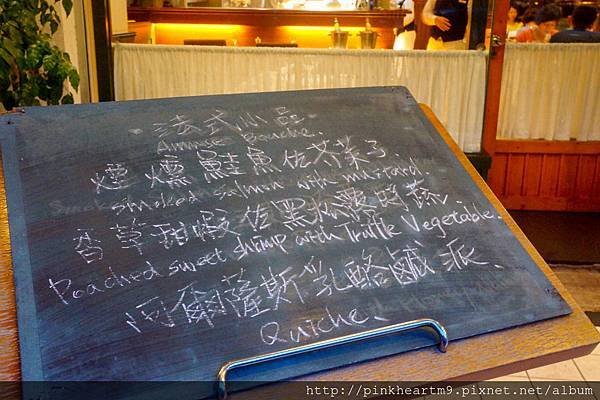 法式小品
Amuse Bouche.
煙燻鮭魚佐芥茉子
smoked salmon with mustard.
香草甜蝦佐黑松露時蔬
Poached sweet shrimp with Truffle Vegetable.
阿爾薩斯乳酪鹹派、
Quiche、
http://pinkheartm9.pixnet.net/album